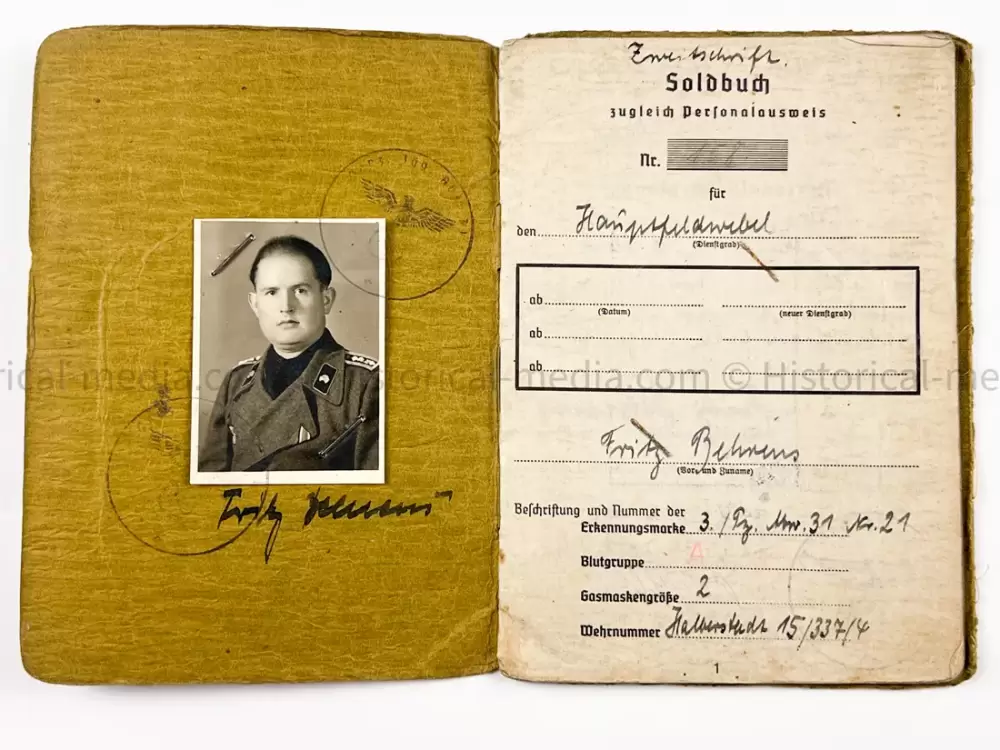 Fritz Behrens
Zweitschrift.
Soldbuch
zugleich Personalausweis
Nr. 158
für
den Hauptfeldwebel
(Dienstgrad)
ab
(Datum) (neuer Dienstgrad)
ab
ab
Fritz Behrens
(Vor- und Zuname)
Beschriftung und Nummer der
Erkennungsmarke 3./Pz. Abw. 31 Nr. 21
Blutgruppe A
Gasmaskengröße 2
Wehrnummer Halberstadt 15/337/4
1
historical-media.com © Historical-me